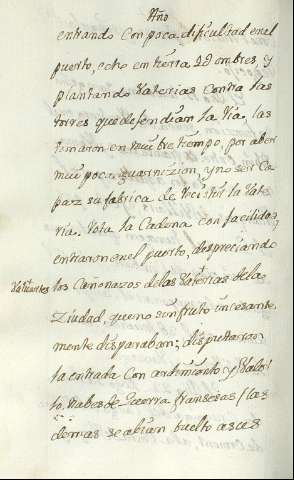 Año
entrando Con poca dificultad en el
puerto, echo en tierra ombres, y
plantando Vaterias Contra las
torres que defendian la Via, las
tomaron en mui bre tiempo, por aber
mui poca guarnizion, y no ser Ca
paz su fabrica de recistir la Vat
ria. Rota la Cadena con facilidad
entraron en el puerto, despreciando
los Cañonazos de las Vaterias de la
Ziudad, que no sin fruto incesante
mente disparaban;
la entrada Con ardimiento y Valor
Nabes de Guerra fransesas (las
demas se abian buelto a sus